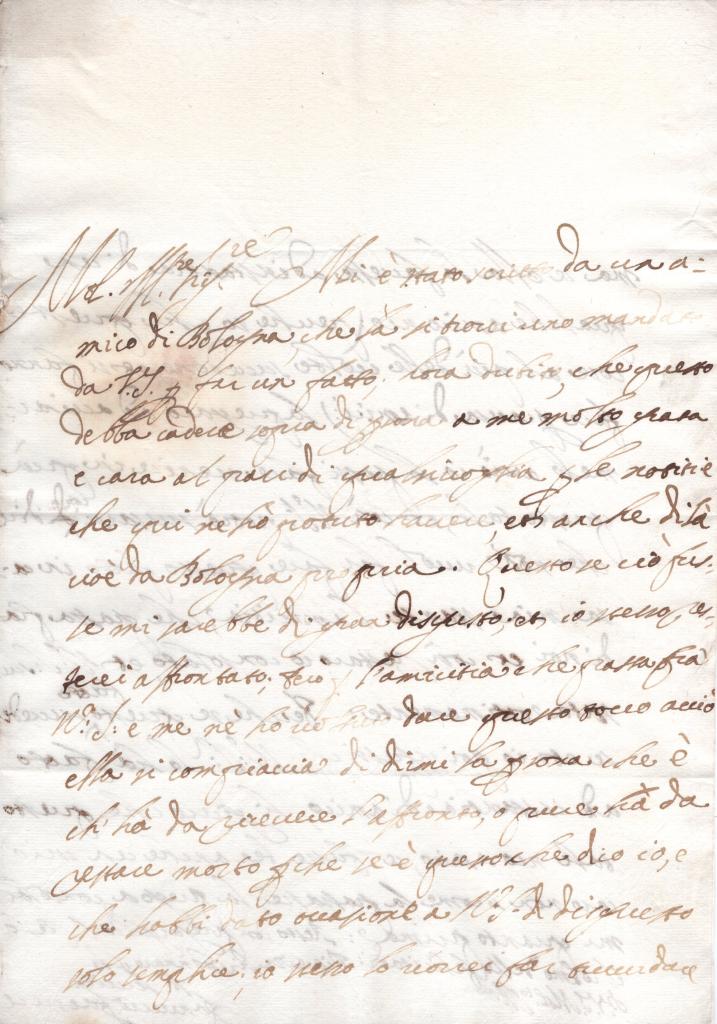 Mol. Ill.re Sig.re Mi è stato scritto da un a=
mico di Bologna, che là si trovi uno mandato
da V.S. p far un fatto, hora dubito, che questo
debba cadere sopra di psona a me molto grata
e cara al pari di qua p le notitie
che qui ne hò potuto havere, et anche di là
cioè da Bologna propria. Questo se ciò fus=
se mi sarebbe di gran disgusto, et io stesso re=
sterei affrontato; però p l'amicitia che passa fra
V.S. e me ne hò dare questo tocco acciò
ella si compiaccia di dirmi la psona che è
ch' hà da ricevere l'affronto, o pure hà da
restare morto pche se è questo che dico io, e
che habbi dato occasione a V.S. di disgusto
solo semplice, io stesso lo vorrei far